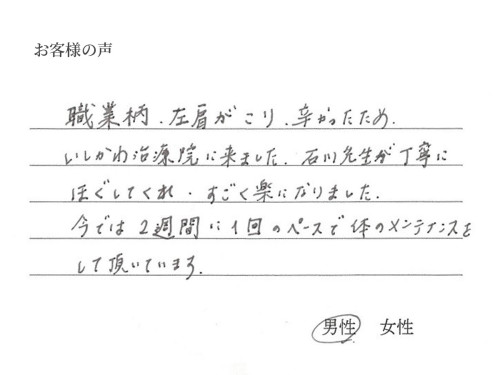 お客様の声
職業柄、左肩がこり、辛かったため、
いしかわ治療院に来ました。石川先生が丁寧に
ほぐしてくれ、すごく楽になりました。
今では2週間に1回のペースで体のメンテナンスを
して頂いています。
男性 女性